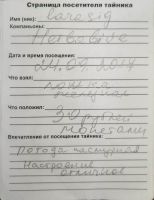 Страница посетителя тайника
Имя (ник): caresig
Компаньоны:
Дата и время посещения:
24.09.2014
Что взял:
ложка
чайная
Что положил:
30 рублей
монетами
Впечатления от посещения тайника:
Погода пасмурная
Настроение
отличное